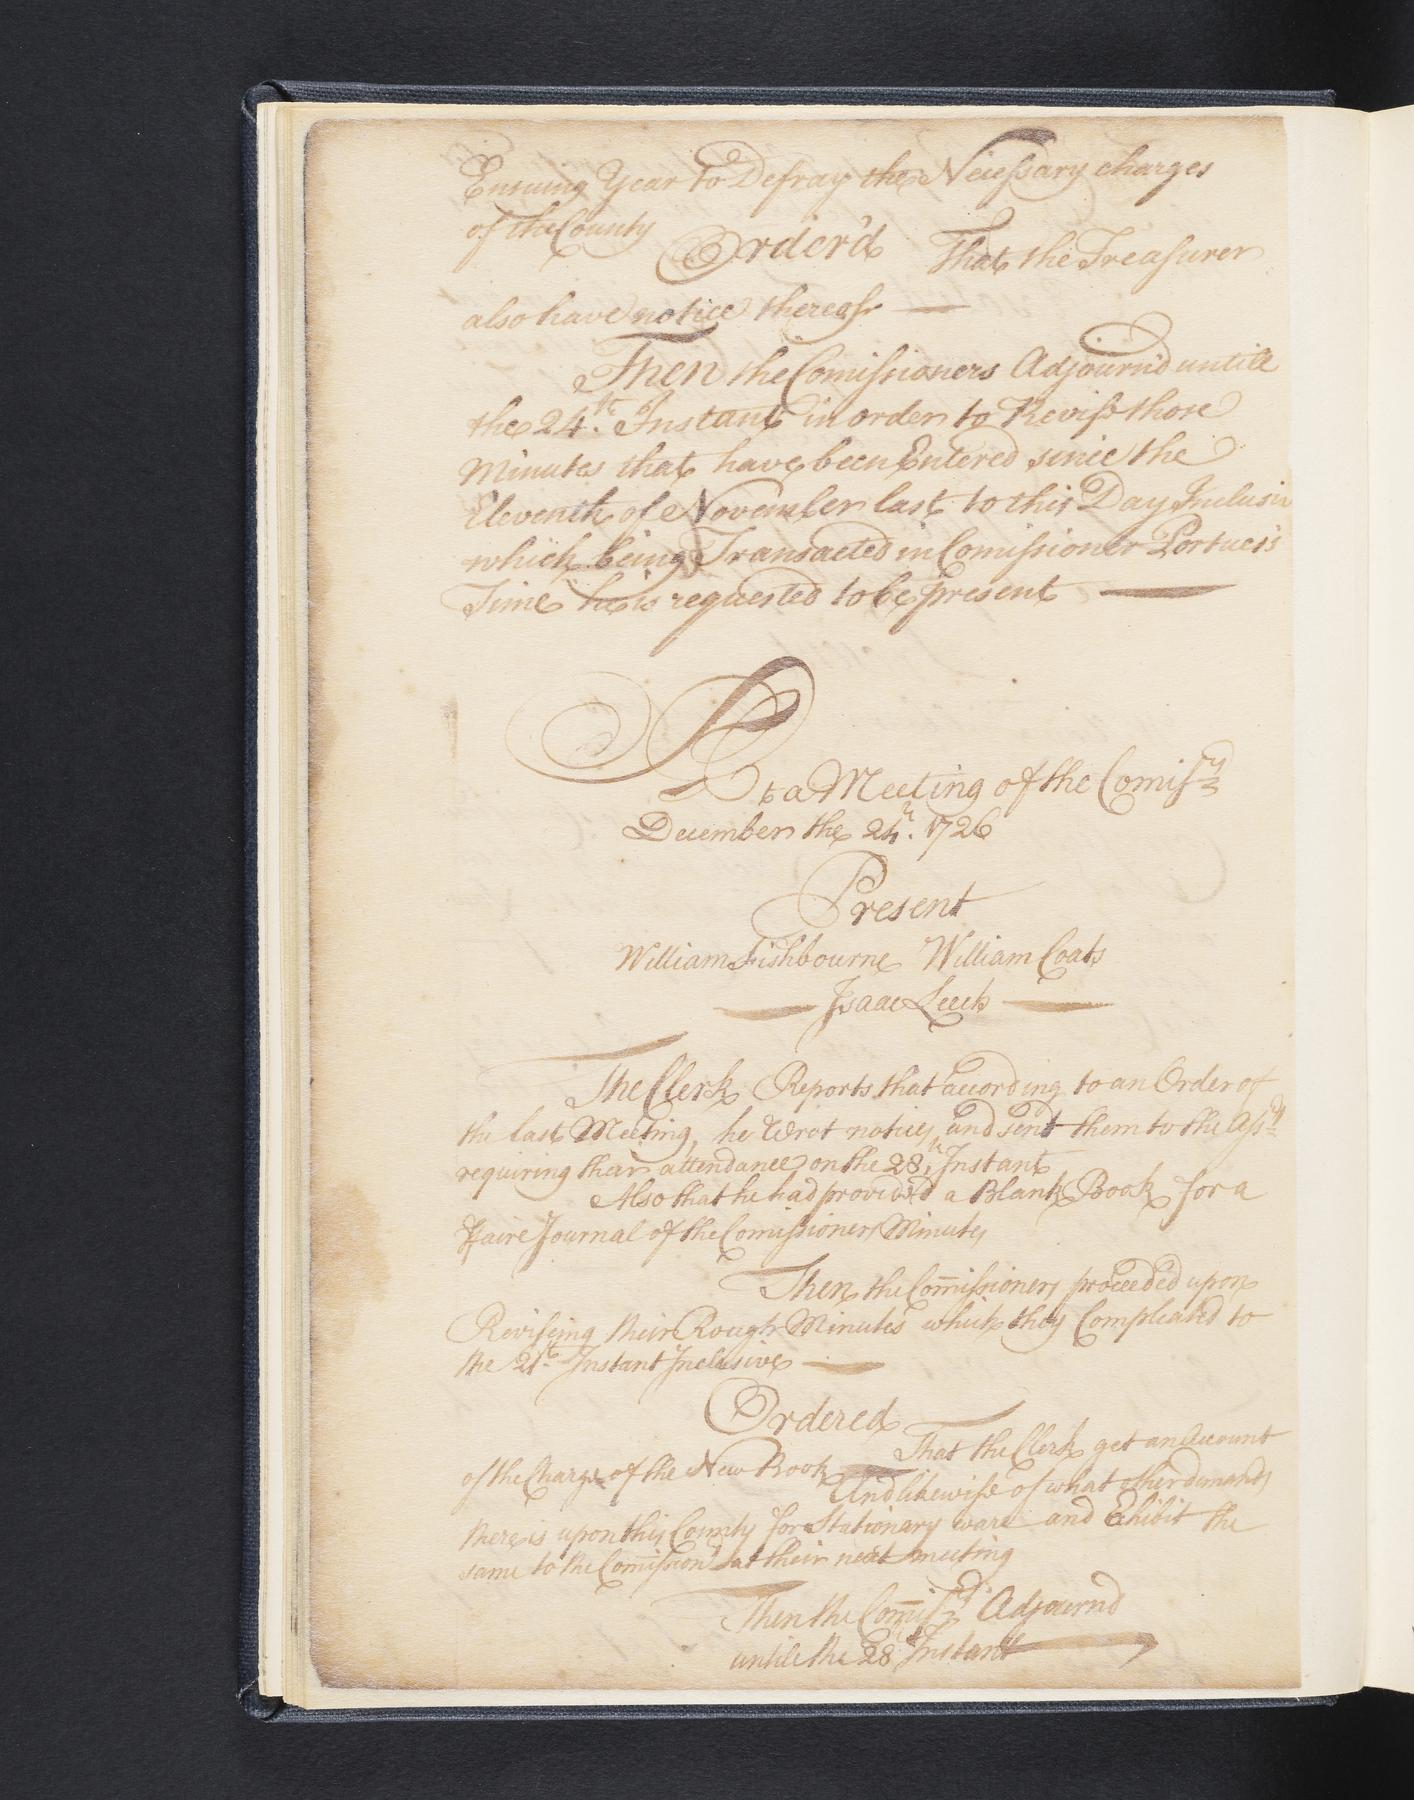 Ensuing Year to Defray the Necessary charges
of the County Order'd That the Treasurer
also have notice thereof
Then the Comissioners Adjourn'd untill
the 24th. Instant in order to Revise those
Minutes that have been Entered since the
Eleventh of November last to this Day Inclusiv
which being Transacted in Comissioner Portues's
Time he is requested to be present
At a Meeting of the Comissrs
December the 24th. 1726
Present
William Fishbourne William Coats
Isaac Leech
The Clerk Reports that according to an Order of
the last Meeting, he Wrot notices and sent them to the Assrs
requiring their attendance on the 28th. Instant
Also that he had provided a Blank Book for a
Faire Journal of the Comissioners Minutes
Then the Com̄issioners proceeded upon
Reviseing their Rough Minutes which they Compleated to
the 21st Instant Inclusive
Ordered
That the Clerk get an Account
of the Charge of the New Book
And likewise of what other demands
there is upon this County for Stationary ware and Exhibit the
same to the Com̄issionrs at their next meeting
Then the Com̄issrs Adjournd
untill the 28th Instant